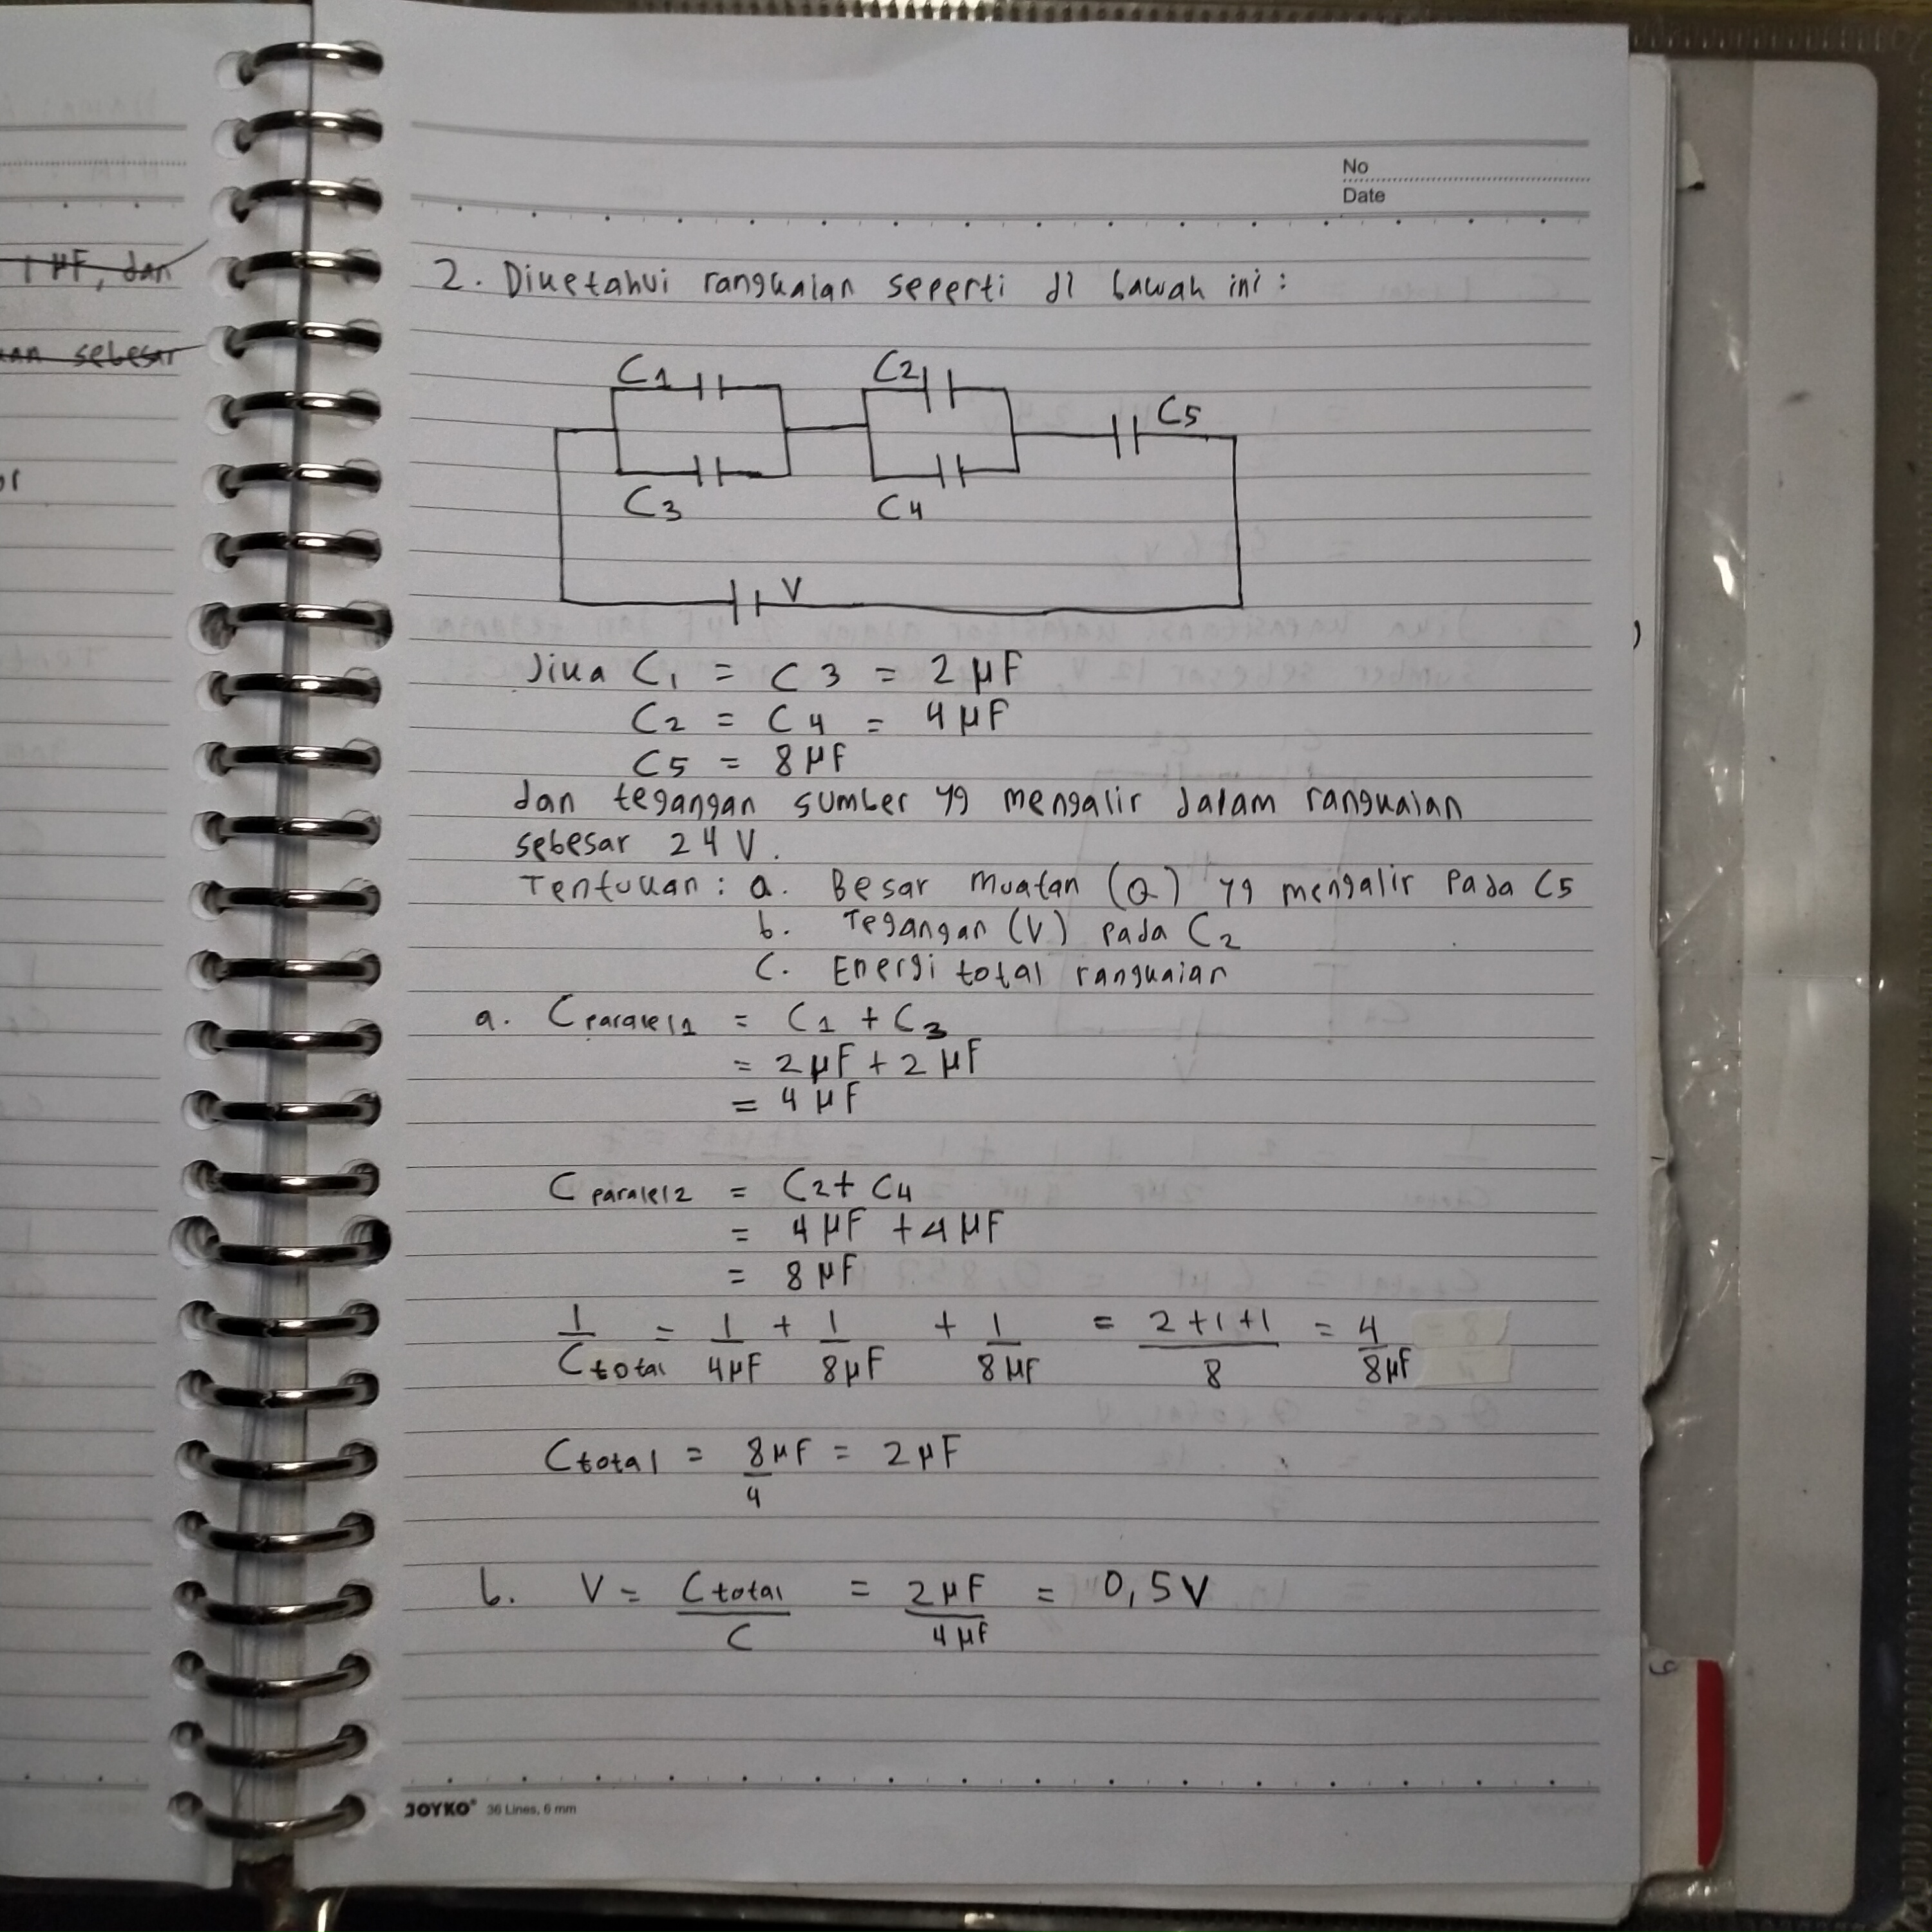 No
Date
1 µF, dan
sebesar
2. Diketahui rangkaian seperti di bawah ini :
C1 C2
C5
C3 C4
V
Jika C1 = C3 = 2 µF
C2 = C4 = 4 µF
C5 = 8 µF
dan tegangan sumber yg mengalir dalam rangkaian
sebesar 24 V.
Tentukan : a. Besar muatan (Q) yg mengalir pada C5
b. Tegangan (V) pada C2
c. Energi total rangkaian
a. Cparalel1 = C1 + C3
= 2 µF + 2 µF
= 4 µF
Cparalel2 = C2 + C4
= 4 µF + 4 µF
= 8 µF
1/Ctotal = 1/4µF + 1/8µF + 1/8µF = 2+1+1/8 = 4/8µF
Ctotal = 8/4 µF = 2 µF
b. V = Ctotal/C = 2 µF/4 µF = 0,5 V
JOYKO® 36 Lines, 6 mm